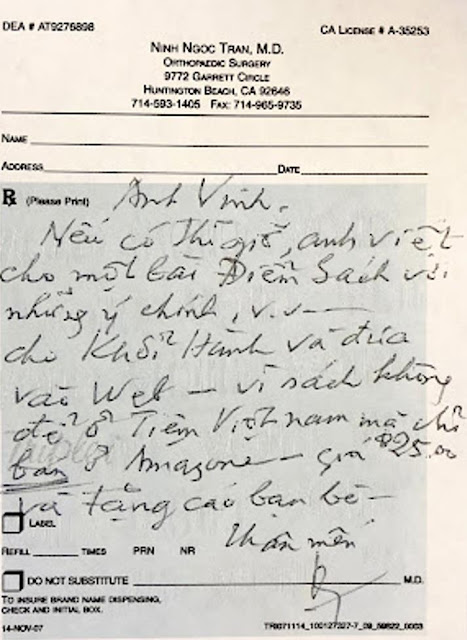 DEA # AT9276898
CA LICENSE # A-35253
NINH NGOC TRAN, M.D.
ORTHOPAEDIC SURGERY
9772 GARRETT CIRCLE
HUNTINGTON BEACH, CA 92646
714-593-1405 FAX: 714-965-9735
NAME
ADDRESS DATE
℞ (Please Print) Anh Vinh.
Nếu có thì giờ, anh viết
cho một bài Điểm Sách với
những ý chính, v.v
cho Khởi Hành và đưa
vào Web — vì sách không
để ở Tiệm Việt nam mà chỉ
bán ở Amazone — giá $25.00
và tặng các bạn bè —
LABEL
Thân mến
REFILL TIMES PRN NR
DO NOT SUBSTITUTE M.D.
TO INSURE BRAND NAME DISPENSING,
CHECK AND INITIAL BOX.
14-NOV-07